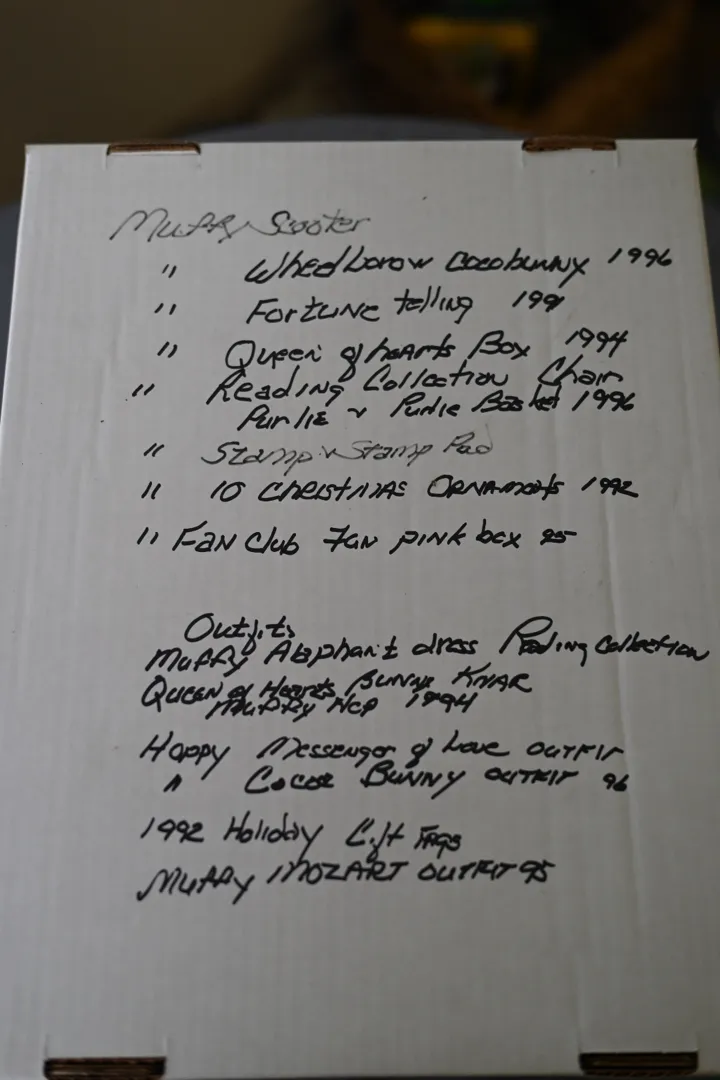 Muffy Scooter
" Wheelborow Cocobunny 1996
" Fortune telling 199
" Queen of hearts Box 1994
" Reading Collection Chair
Purlie & Purlie Basket 1996
" Stamp & Stamp Pad
" 10 Christmas Ornaments 1992
" Fan Club Fan pink box 95
Outfits
Muffy dress Reading Collection
Queen of Hearts Bunny
Muffy 1994
Hoppy Messenger of Love outfit
" Cocoa Bunny outfit 96
1992 Holiday Gift Tags
Muffy Mozart outfit 95